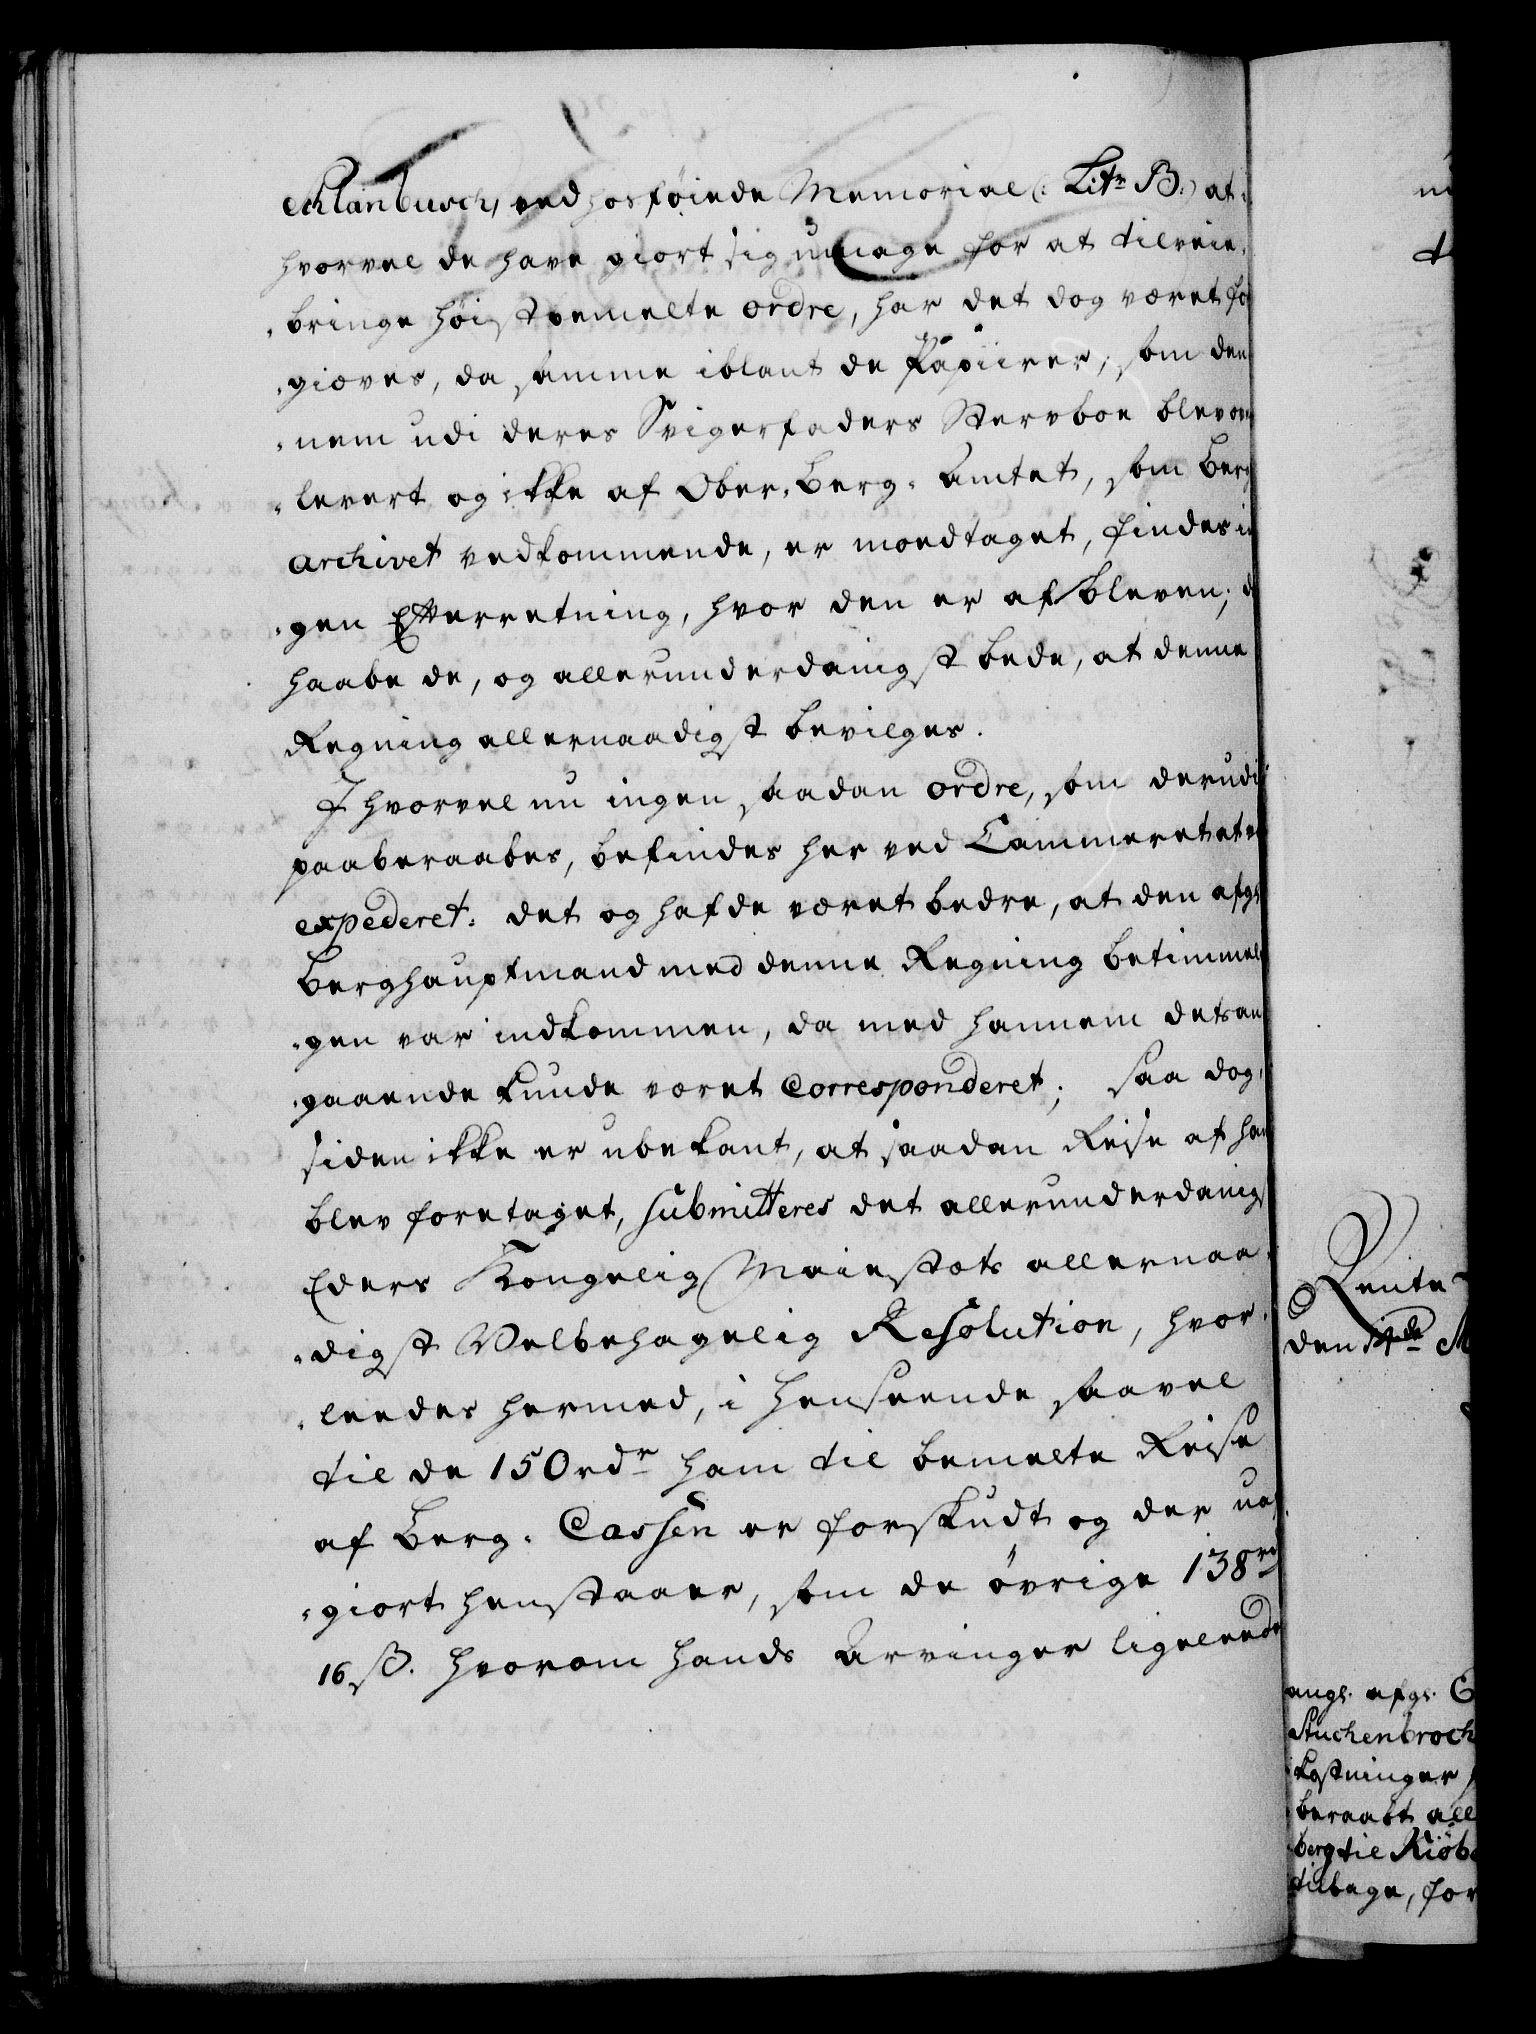 Schlanbusch, ved hosføiede Memorial (: Litr B:) at i
hvorvel de have giort sig umage for at tilveie-
-bringe høistbemelte ordre, har det dog været for
-gieves, da samme iblant de Papiirer, som den
-nem udi deres Svigerfaders Stervboe blev over
-levert og ikke af Ober-Berg-Amtet, som Berg
Archivet vedkommende, er moedtaget, findes in
-gen Efterretning, hvor den er afbleven; d
haabe de, og allerunderdanigst bede, at denne
Regning allernaadigst bevilges.
I hvorvel nu ingen saadan ordre, som derudi
paaberaabes, befindes her ved Cammeret at v
expederet: det og hafde været bedre, at den afgl
Berghauptmand med denne Regning betimmel
-gen var indkommen, da med hannem detsan
-gaaende kunde været Corresponderet; saa dog,
siden ikke er ubekant, at saadan Reise af ham
blev foretaget, submitteres det allerunderdanigs
Eders Kongelig Maiestæts allernaa-
-digst Velbehagelig Resolution, hvor-
-leedes hermed, i henseende saavel
til de 150 rdr ham til bemelte Reise
af Berg-Cassen er forskudt og der uaf
-giort henstaaer, som de øvrige 138 rd
16 ß. hvorom hands Arvinger ligeleede
Rente-
den 14de M
angl. afgl.
Stuchenbroch
kostninger
beraabt all
berg til Kiøb
tilbage, for